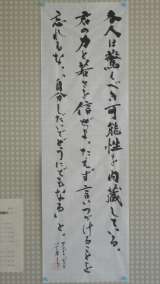 各人は驚くべき可能性を内蔵している。
君の力と若さを信ぜよ。たえず言いつづけることを
忘れるな、「自分しだいでどうにでもなる」と。